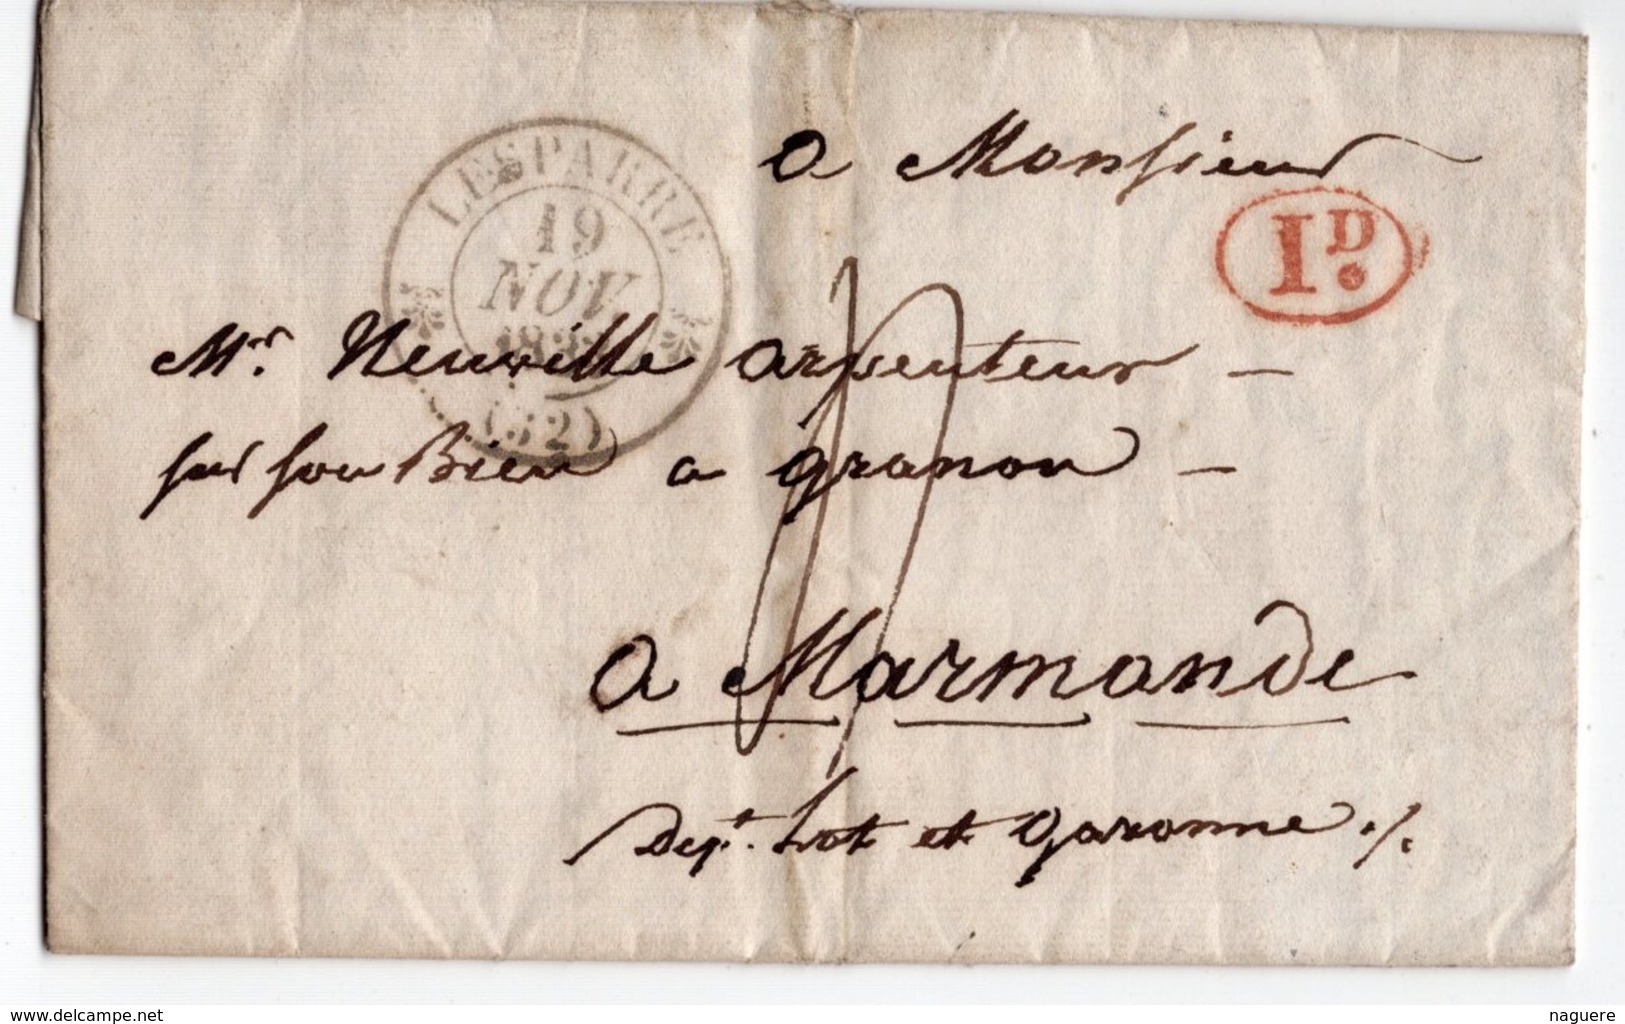 a Monsieur
LESPARRE
19
NOV
(32)
1D.
Mr. Neuville arpenteur -
sur son Bien a granon -
a Marmande
Dept. Lot et Garonne ./.
www.delcampe.net
naguere